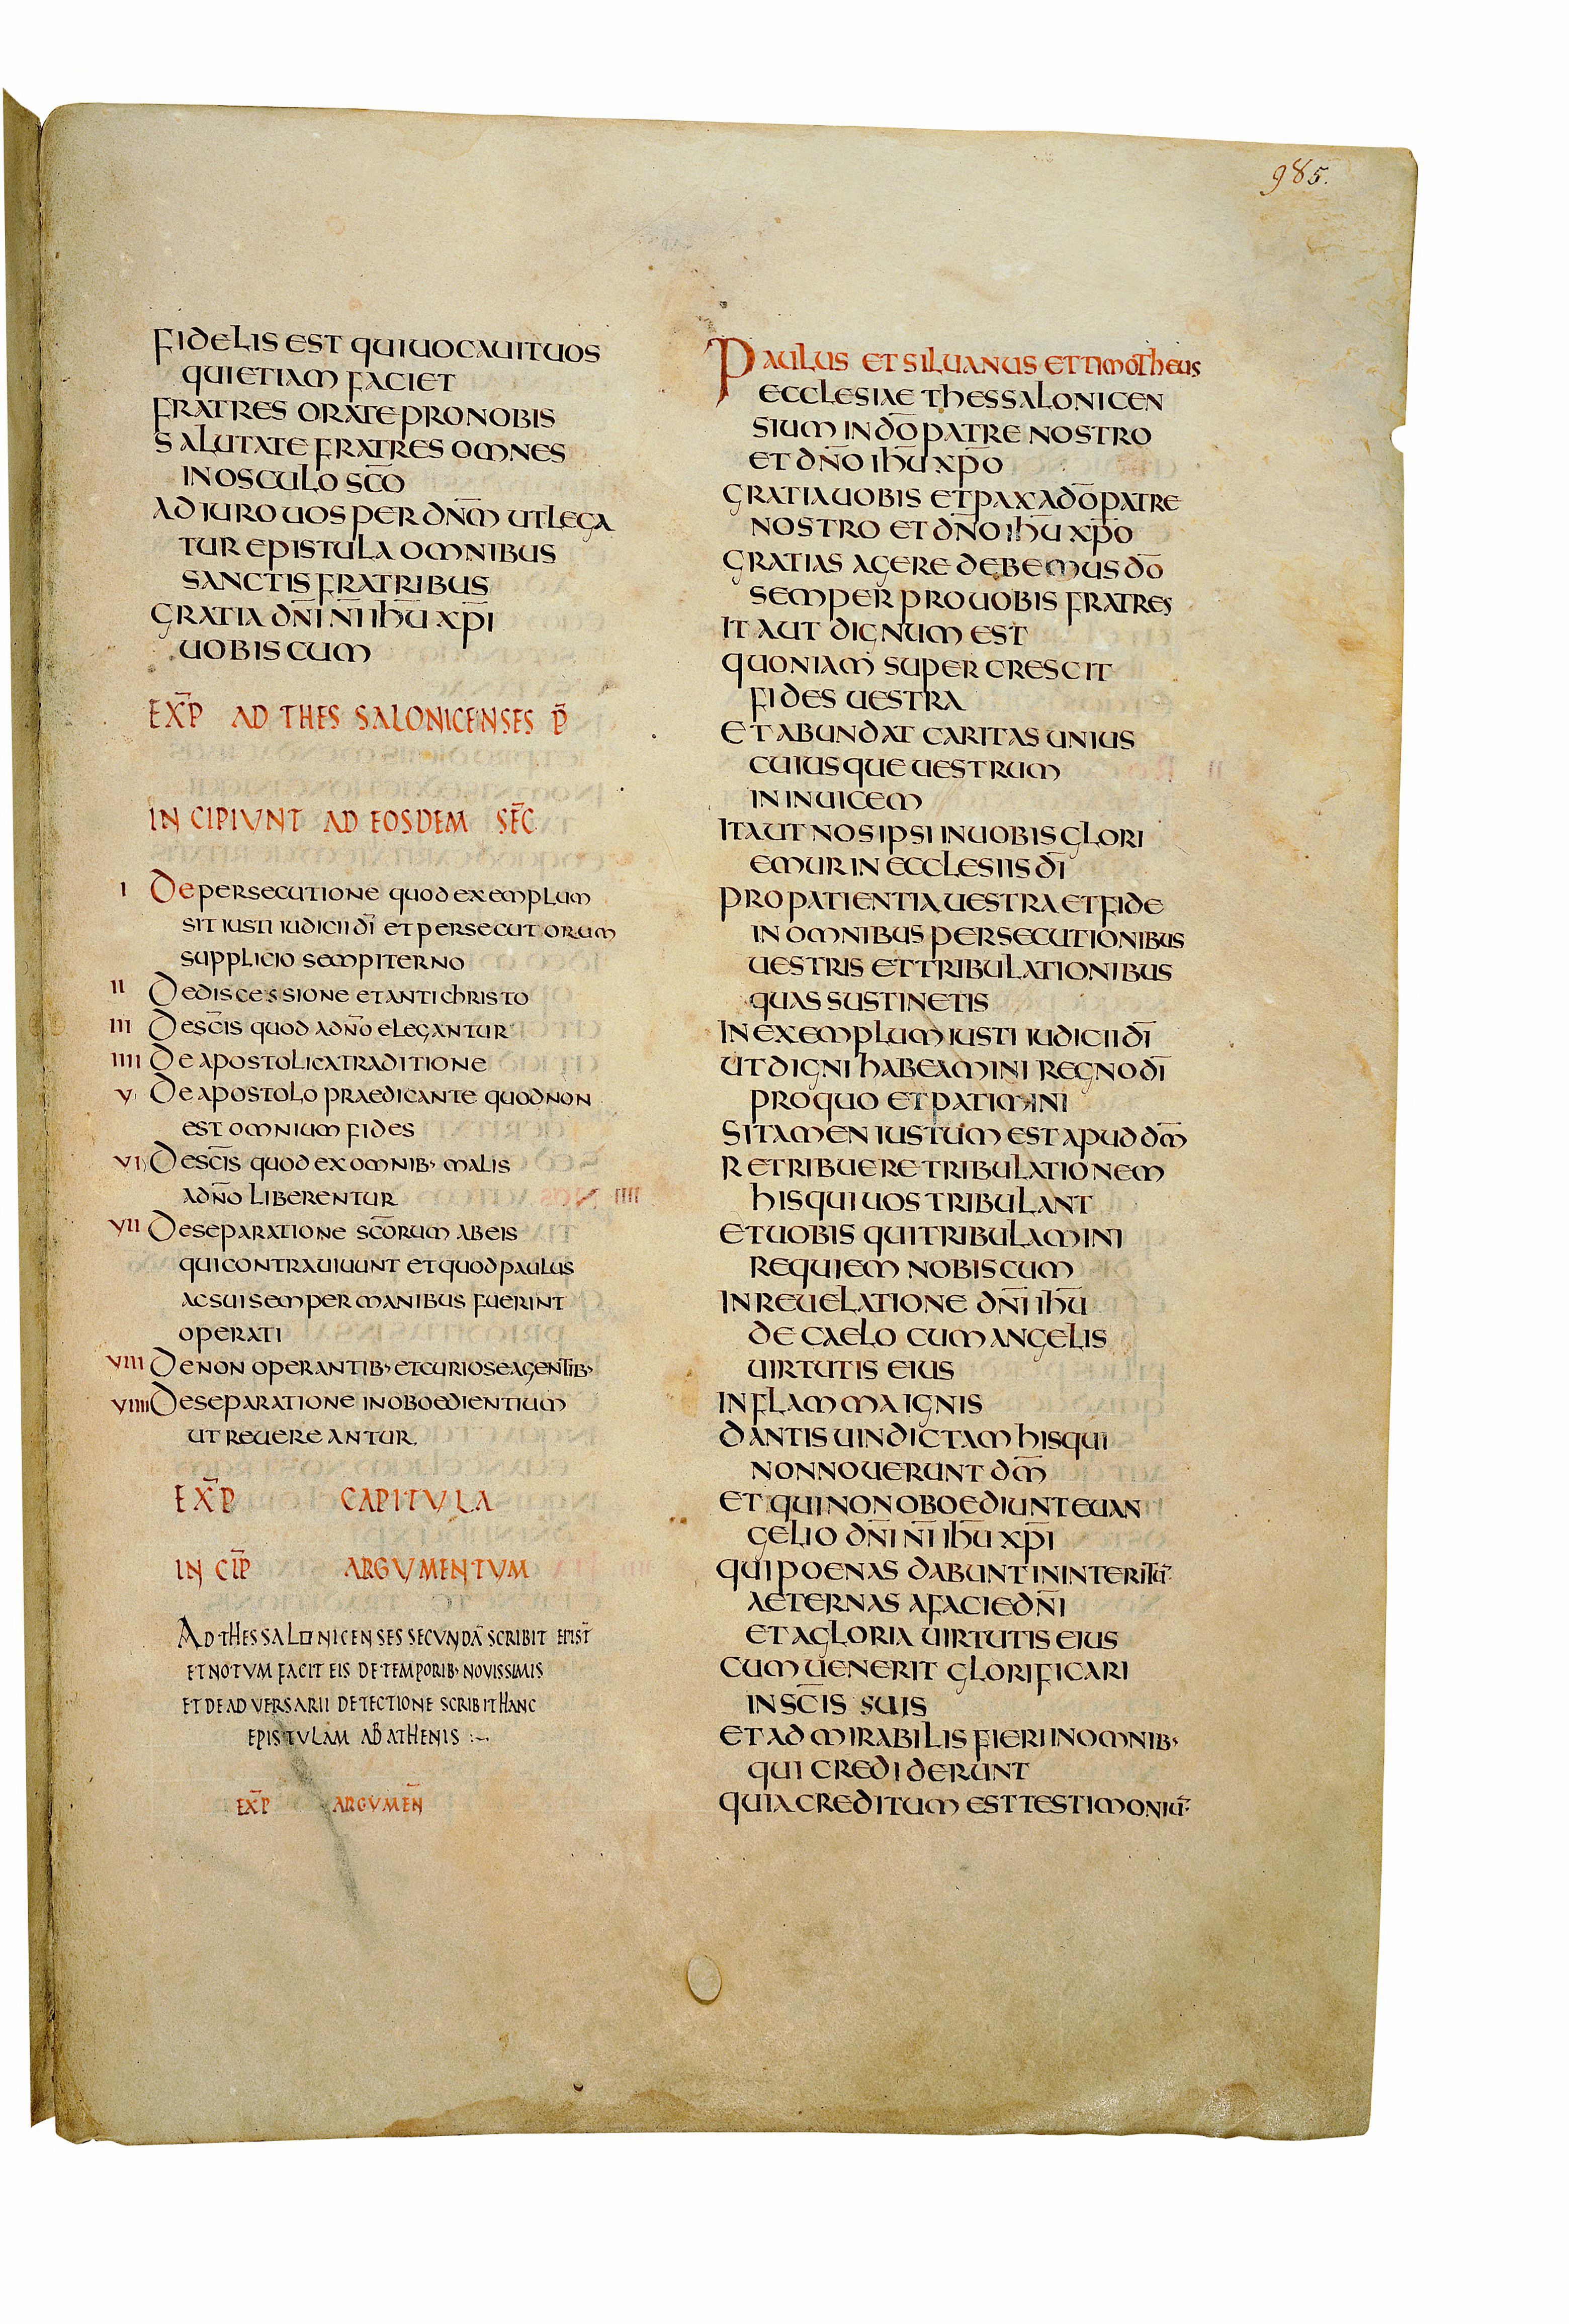 985.
FIDELIS EST QUI UOCAUIT UOS
QUI ETIAM FACIET
FRATRES ORATE PRO NOBIS
SALUTATE FRATRES OMNES
IN OSCULO SC̅O
ADIURO UOS PER DN̅M UT LEGA
TUR EPISTULA OMNIBUS
SANCTIS FRATRIBUS
GRATIA DN̅I N̅I IH̅U XP̅I
UOBISCUM
EXP̅ AD THESSALONICENSES P̅
INCIPIUNT AD EOSDEM SEC̅
I DE PERSECUTIONE QUOD EXEMPLUM
SIT IUSTI IUDICII DI̅ ET PERSECUTORUM
SUPPLICIO SEMPITERNO
II DE DISCESSIONE ET ANTICHRISTO
III DE SC̅IS QUOD A DN̅O ELEGANTUR
IIII DE APOSTOLICA TRADITIONE
V DE APOSTOLO PRAEDICANTE QUOD NON
EST OMNIUM FIDES
VI DE SC̅IS QUOD EX OMNIB· MALIS
A DN̅O LIBERENTUR
VII DE SEPARATIONE SC̅ORUM AB EIS
QUI CONTRA UIUUNT ET QUOD PAULUS
AC SUI SEMPER MANIBUS FUERINT
OPERATI
VIII DE NON OPERANTIB· ET CURIOSE AGENTIB·
VIIII DE SEPARATIONE INOBOEDIENTIUM
UT REUEREANTUR.
EXP̅ CAPITULA
INCIP̅ ARGUMENTUM
AD THESSALONICENSES SECUNDA̅ SCRIBIT EPIST̅
ET NOTUM FACIT EIS DE TEMPORIB· NOVISSIMIS
ET DE ADVERSARII DETECTIONE SCRIBIT HANC
EPISTULAM AB ATHENIS :~
EXP̅ ARGUMEN̅
PAULUS ET SILUANUS ET TIMOTHEUS
ECCLESIAE THESSALONICEN
SIUM IN DO̅ PATRE NOSTRO
ET DN̅O IH̅U XP̅O
GRATIA UOBIS ET PAX A DO̅ PATRE
NOSTRO ET DN̅O IH̅U XP̅O
GRATIAS AGERE DEBEMUS DO̅
SEMPER PRO UOBIS FRATRES
ITA UT DIGNUM EST
QUONIAM SUPERCRESCIT
FIDES UESTRA
ET ABUNDAT CARITAS UNIUS
CUIUSQUE UESTRUM
IN INUICEM
ITA UT NOS IPSI IN UOBIS GLORI
EMUR IN ECCLESIIS DI̅
PRO PATIENTIA UESTRA ET FIDE
IN OMNIBUS PERSECUTIONIBUS
UESTRIS ET TRIBULATIONIBUS
QUAS SUSTINETIS
IN EXEMPLUM IUSTI IUDICII DI̅
UT DIGNI HABEAMINI REGNO DI̅
PRO QUO ET PATIMINI
SI TAMEN IUSTUM EST APUD DM̅
RETRIBUERE TRIBULATIONEM
HIS QUI UOS TRIBULANT
ET UOBIS QUI TRIBULAMINI
REQUIEM NOBISCUM
IN REUELATIONE DN̅I IH̅U
DE CAELO CUM ANGELIS
UIRTUTIS EIUS
IN FLAMMA IGNIS
DANTIS UINDICTAM HIS QUI
NON NOUERUNT DM̅
ET QUI NON OBOEDIUNT EUAN
GELIO DN̅I N̅I IH̅U XP̅I
QUI POENAS DABUNT IN INTERITU̅
AETERNAS A FACIE DN̅I
ET A GLORIA UIRTUTIS EIUS
CUM UENERIT GLORIFICARI
IN SC̅IS SUIS
ET ADMIRABILIS FIERI IN OMNIB·
QUI CREDIDERUNT
QUIA CREDITUM EST TESTIMONIU̅